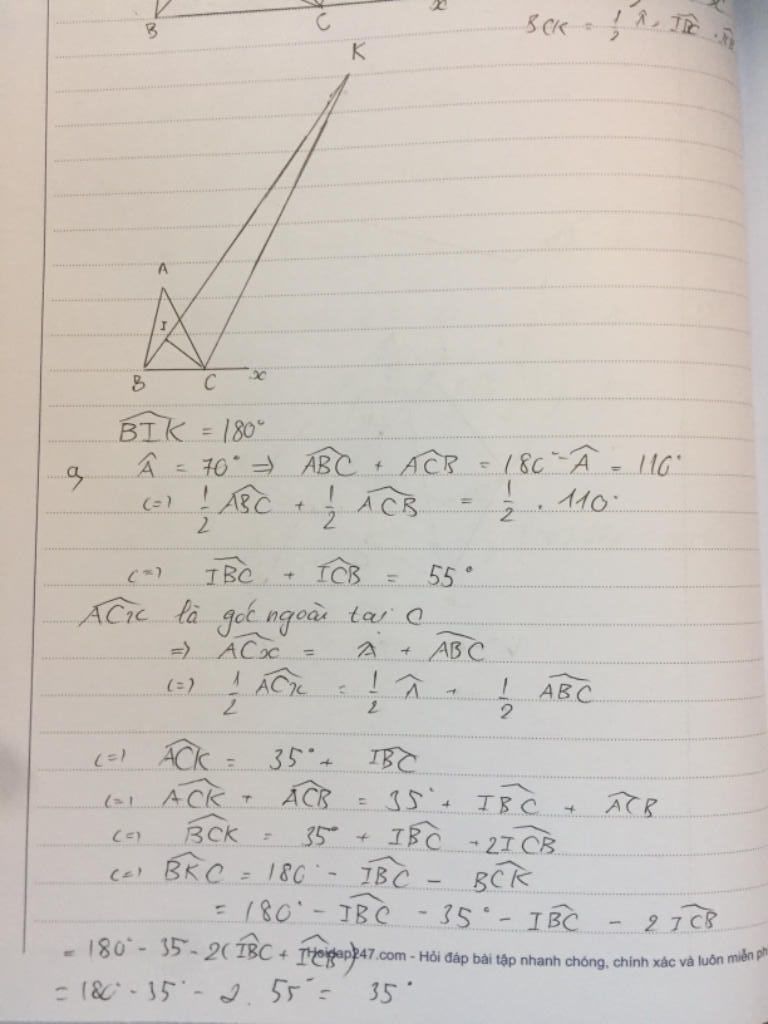 B C x
BCK = 1/2 Â, IBC
K
A
I
B C x
BIK = 180°
a, Â = 70° => ABC + ACB = 180° - Â = 110°
(=) 1/2 ABC + 1/2 ACB = 1/2 . 110°
(=) IBC + ICB = 55°
ACx là góc ngoài tại C
=> ACx = Â + ABC
(=) 1/2 ACx = 1/2 Â + 1/2 ABC
(=) ACK = 35° + IBC
(=) ACK + ACB = 35° + IBC + ACB
(=) BCK = 35° + IBC + 2ICB
(=) BKC = 180° - IBC - BCK
= 180° - IBC - 35° - IBC - 2ICB
= 180° - 35 - 2(IBC + ICB)
Hoidap247.com - Hỏi đáp bài tập nhanh chóng, chính xác và luôn miễn ph
= 180° - 35° - 2. 55° = 35°